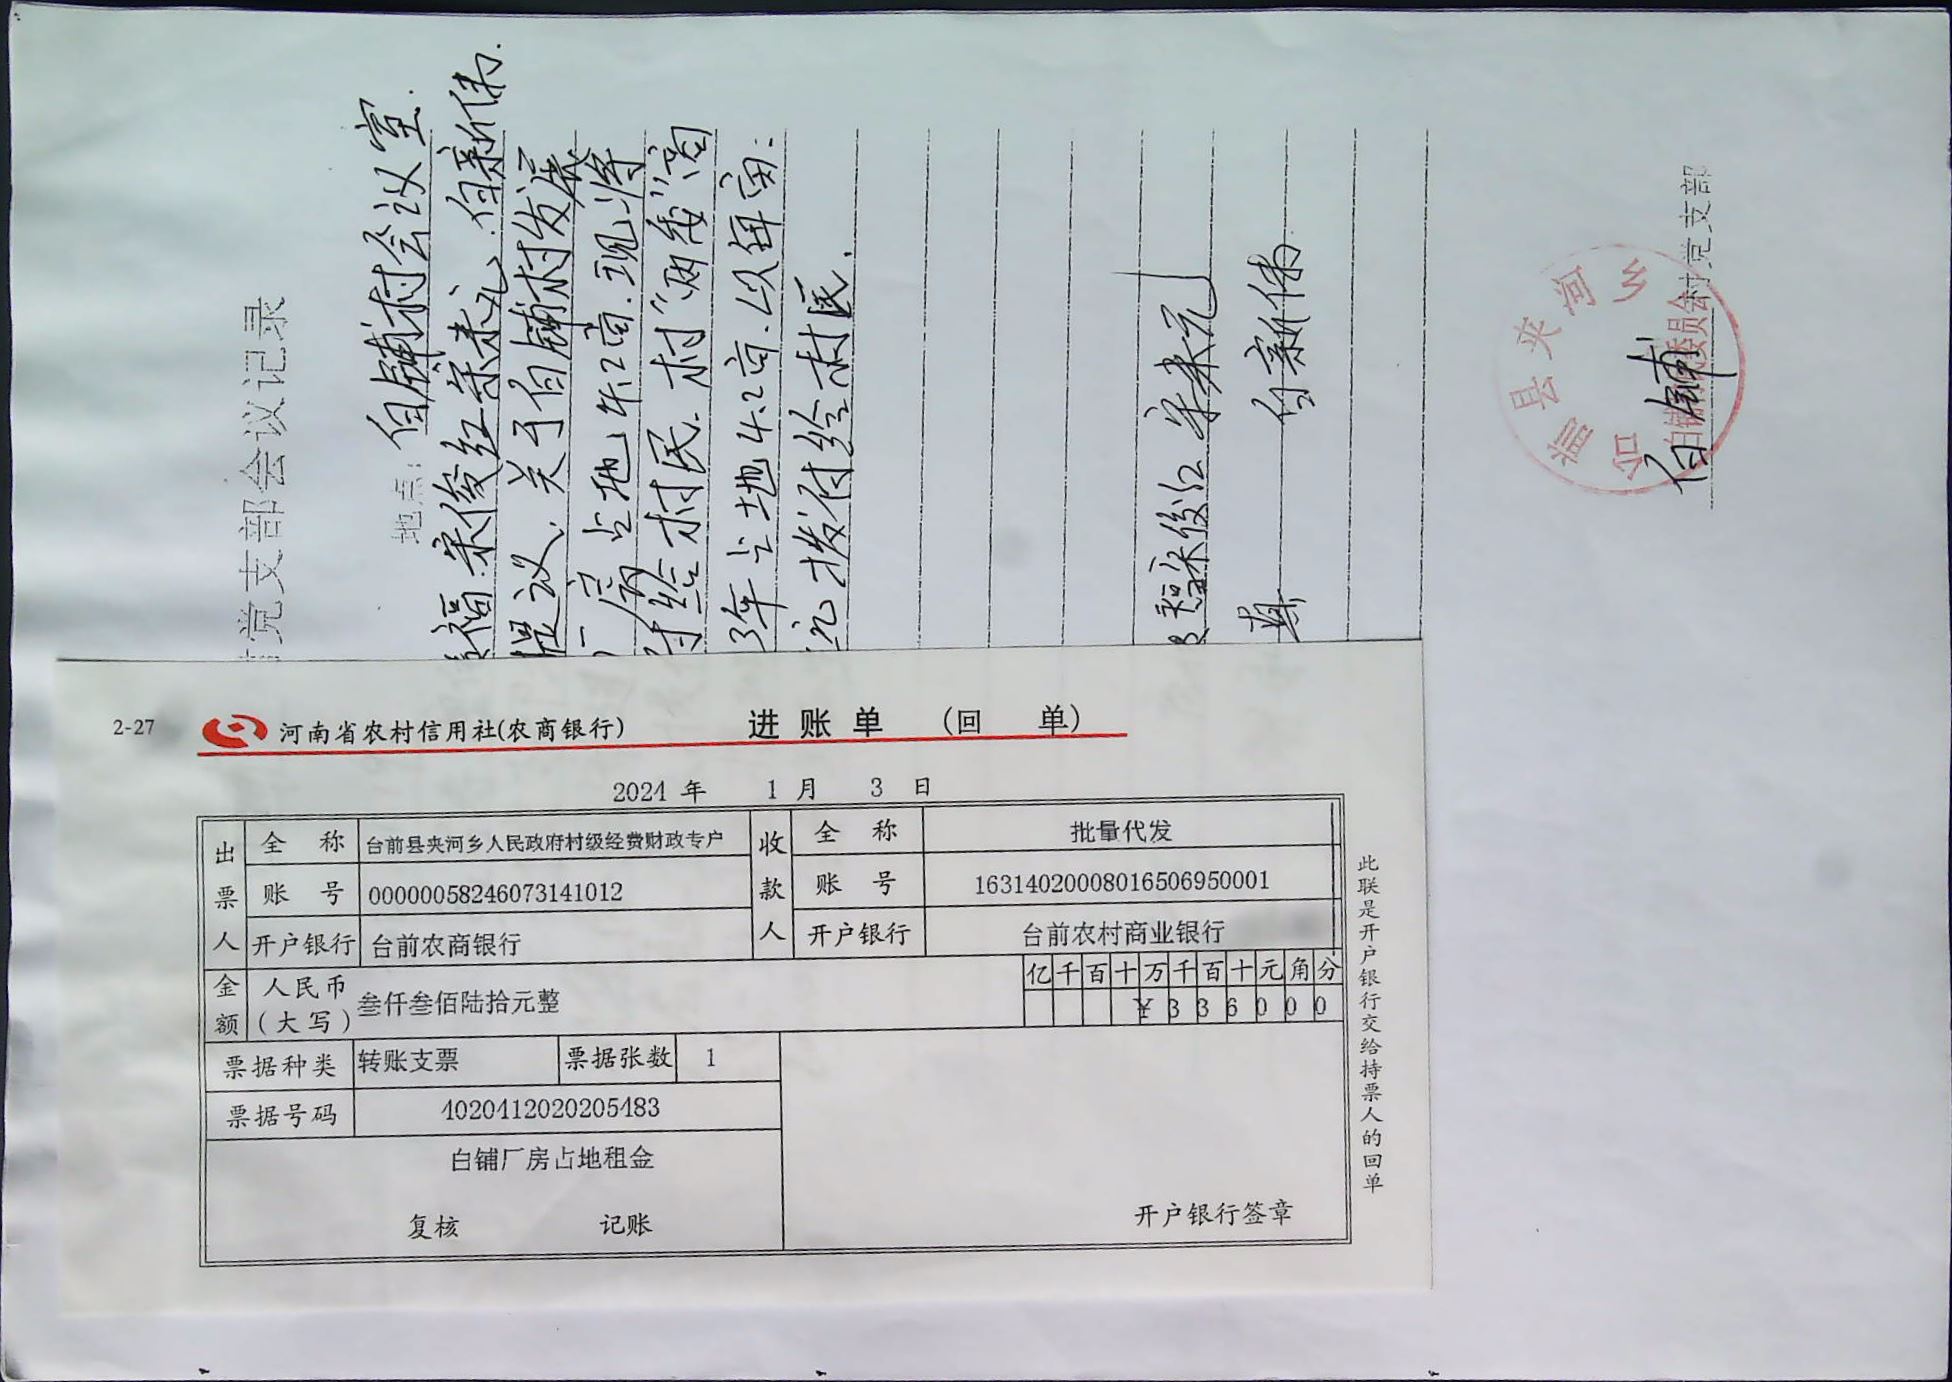 党支部会议记录
地点：白铺村会议室.
福.宋俊红.宋来元.白新伟.
提议、关于白铺村发展
厂房占地4.2亩.现将
付给村民.村"两委"商
3年占地4.2亩.以每亩:
元拨付给村民.
福 宋俊红 宋来元
白新伟
白铺村党支部
台前县夹河乡
白铺村村民委员会
2-27
河南省农村信用社(农商银行)
进账单 (回 单)
2024 年 1 月 3 日
出票人 全称 台前县夹河乡人民政府村级经费财政专户 收款人 全称 批量代发
账号 00000058246073141012 账号 16314020008016506950001
开户银行 台前农商银行 开户银行 台前农村商业银行
金额 人民币(大写) 叁仟叁佰陆拾元整 亿千百十万千百十元角分
¥336000
票据种类 转账支票 票据张数 1
票据号码 4020412020205483
白铺厂房占地租金
复核 记账 开户银行签章
此联是开户银行交给持票人的回单